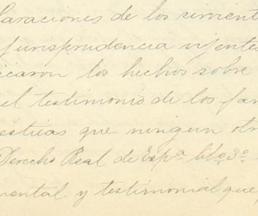 laraciones de los
jurisprudencia vijente
icaron los hechos sobre
el testimonio de los
que ningun otr
Derecho Real de Espª lib. 3º
mental y testimonial que